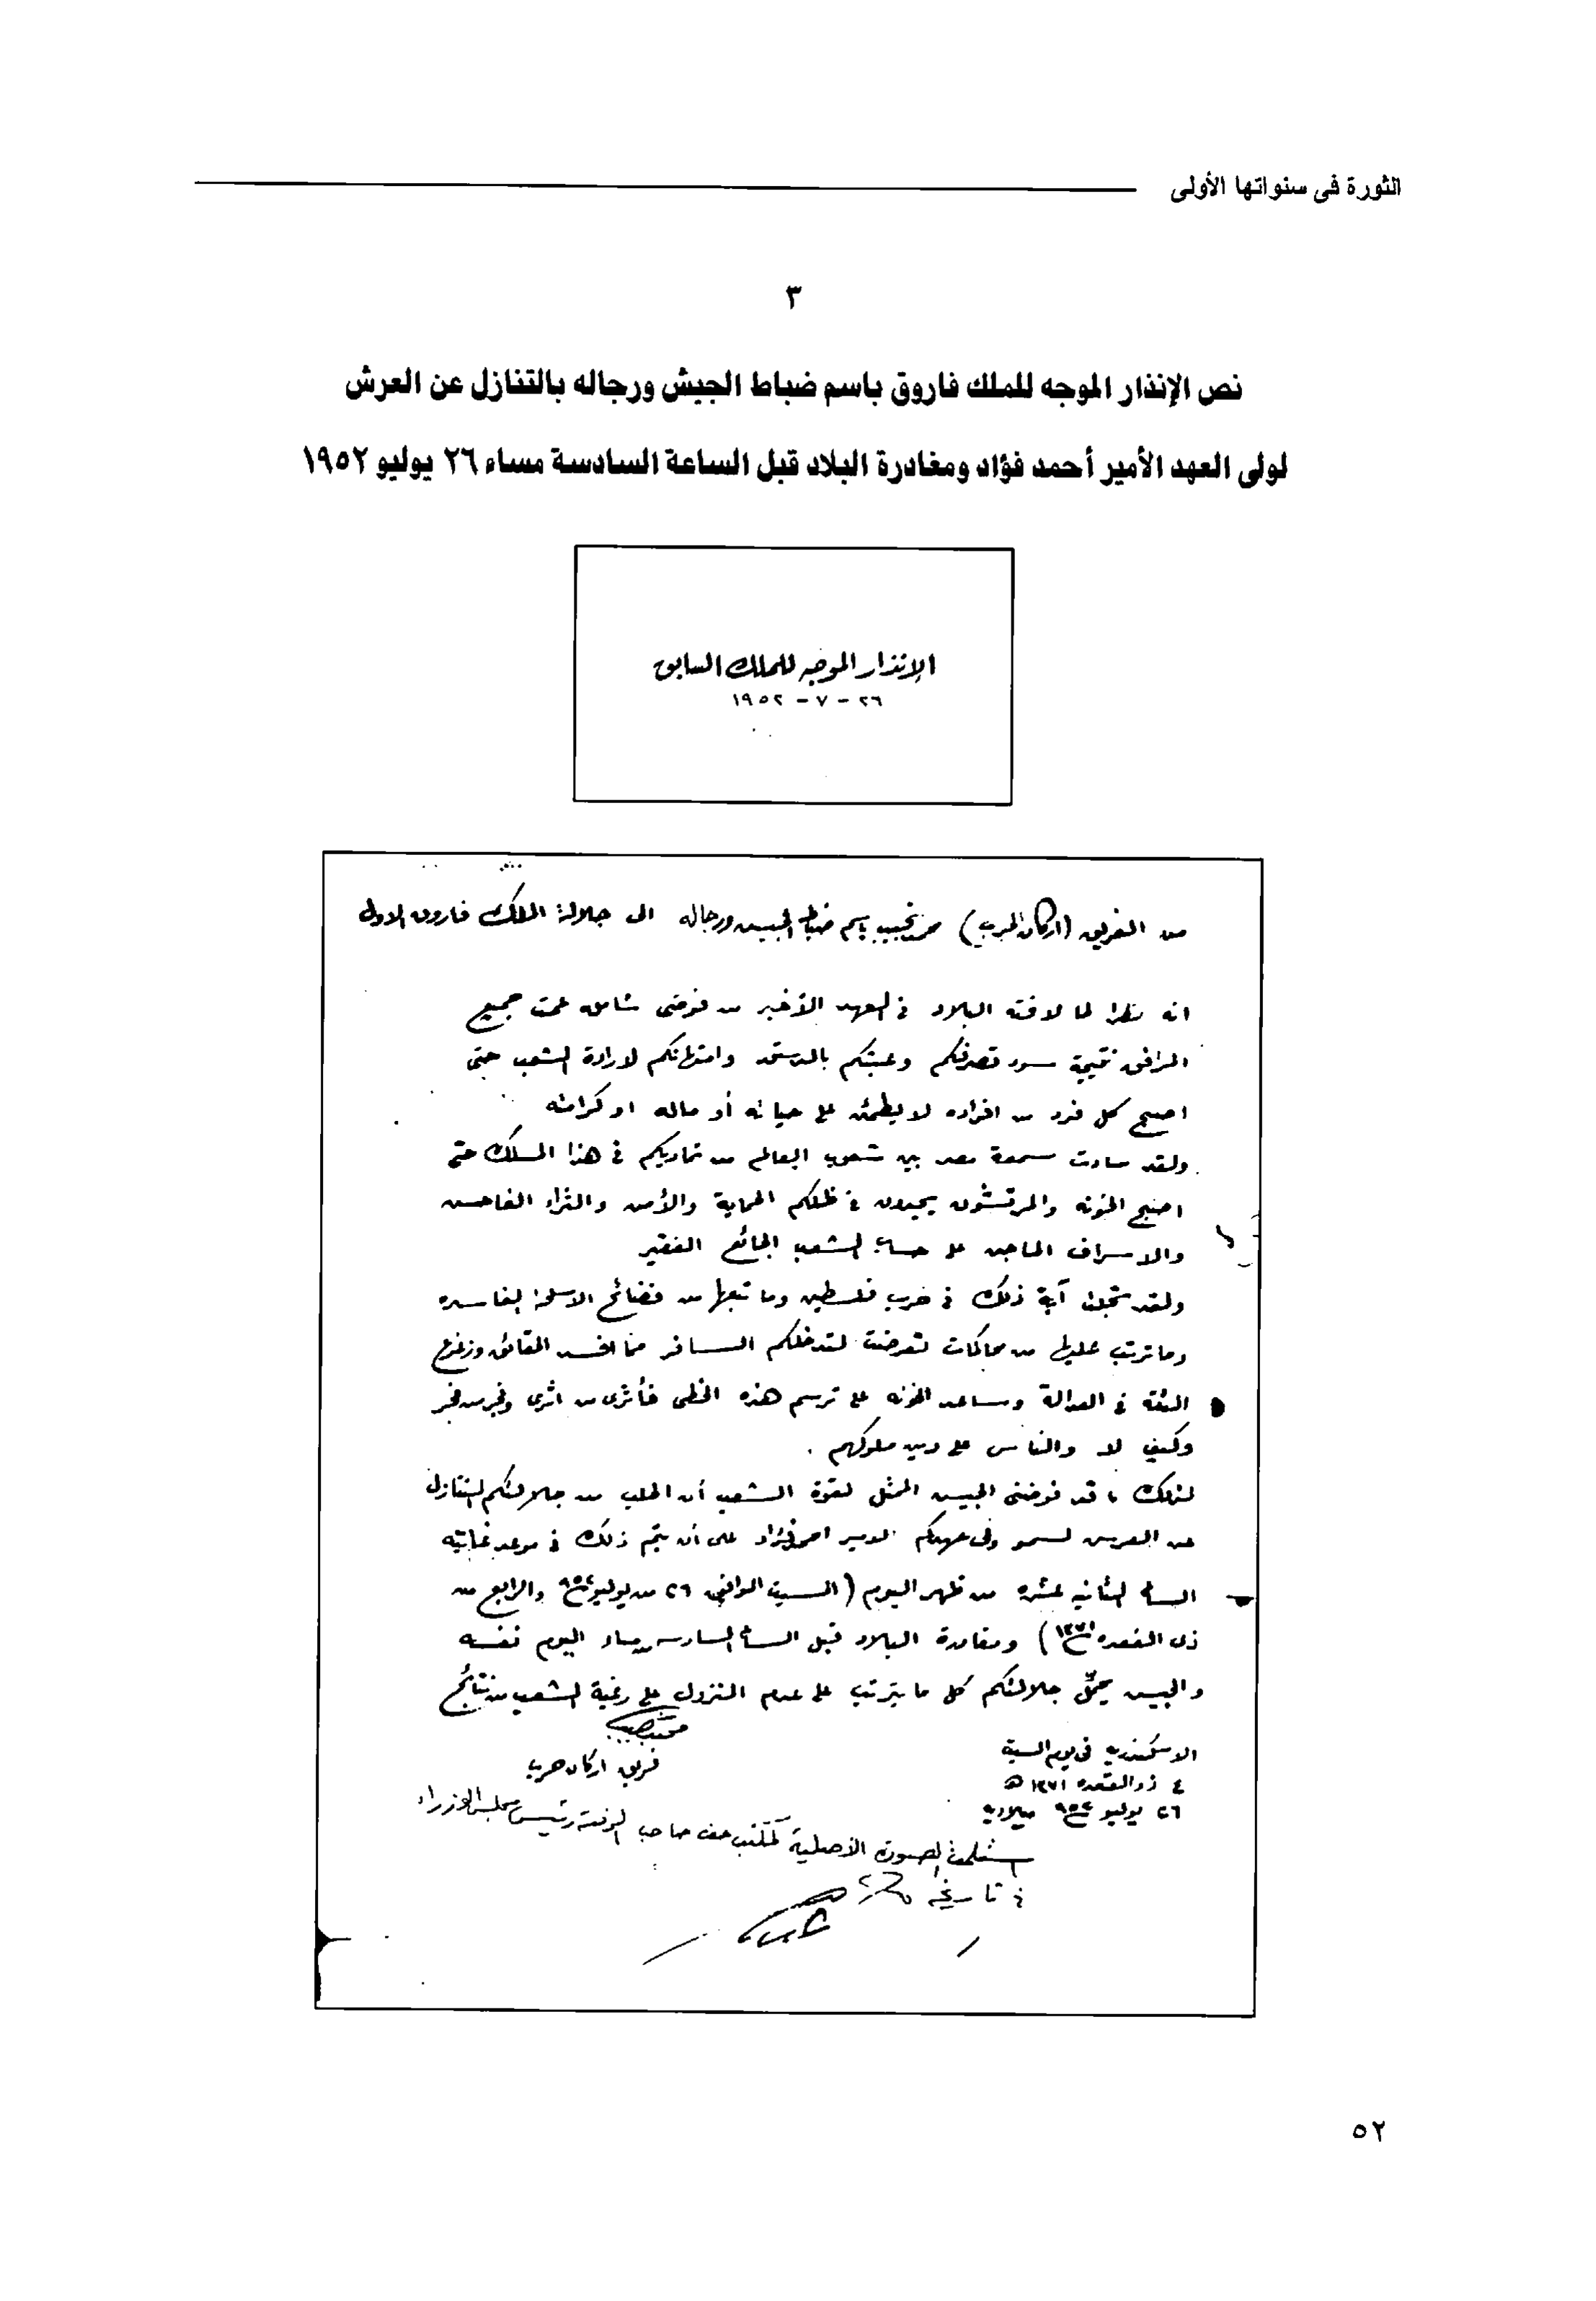 الثورة فى سنواتها الأولى
٣
نص الإنذار الموجه للملك فاروق باسم ضباط الجيش ورجاله بالتنازل عن العرش
لولى العهد الأمير أحمد فؤاد ومغادرة البلاد قبل الساعة السادسة مساء ٢٦ يوليو ١٩٥٢
الإنذار الموجه للملك السابق
٢٦ - ٧ - ١٩٥٢
من الفريق (اركان الحرب) محمد نجيب باسم ضباط الجيش ورجاله الى جلالة الملك فاروق الاول
انه نظرا لما لاقته البلاد فى العهد الأخير من فوضى شاملة عمت جميع
المرافق نتيجة سوء تصرفكم وعبثكم بالدستور وامتهانكم لارادة الشعب حتى
اصبح كل فرد من افراده لا يطمئن على حياته أو ماله او كرامته
ولقد ساءت سمعة مصر بين شعوب العالم من تماديكم فى هذا المسلك حتى
اصبح الخونه والمرتشون يجدون فى ظلكم الحماية والأمن والثراء الفاحش
والاسراف الماجن على حساب الشعب الجائع الفقير
ولقد تجلت آية ذلك فى حرب فلسطين وما تبعها من فضائح الاسلحة الفاسده
وما ترتب عليها من محاكمات تعرضت لتدخلكم السافر مما افسد الحقائق وزعزع
الثقة فى العدالة وساعد الخونه على ترسم هذه الخطى فأثرى من اثرى وفجر من فجر
وكيف لا والناس على دين ملوكهم .
لذلك ، قد فوضنى الجيش الممثل لقوة الشعب أن اطلب من جلالتكم التنازل
عن العرش لسمو ولى عهدكم الامير احمد فؤاد على أن يتم ذلك فى موعد غايته
الساعة الثانيه عشره من ظهر اليوم (السبت الموافق ٢٦ من يوليو ١٩٥٢ والرابع من
ذى القعده ١٣٧١) ومغادرة البلاد قبل الساعة السادسة من مساء اليوم نفسه
والجيش يحمّل جلالتكم كل ما يترتب على عدم النزول على رغبة الشعب من نتائج
محمد نجيب
فريق اركان حرب
الاسكندريه فى يوم السبت
٤ ذو القعده ١٣٧١ هـ
٢٦ يوليو ١٩٥٢ ميلاديه
استلمت الصورة الأصلية لمكتب حضرة صاحب الرفعة رئيس مجلس الوزراء
فى تاريخه
٥٢